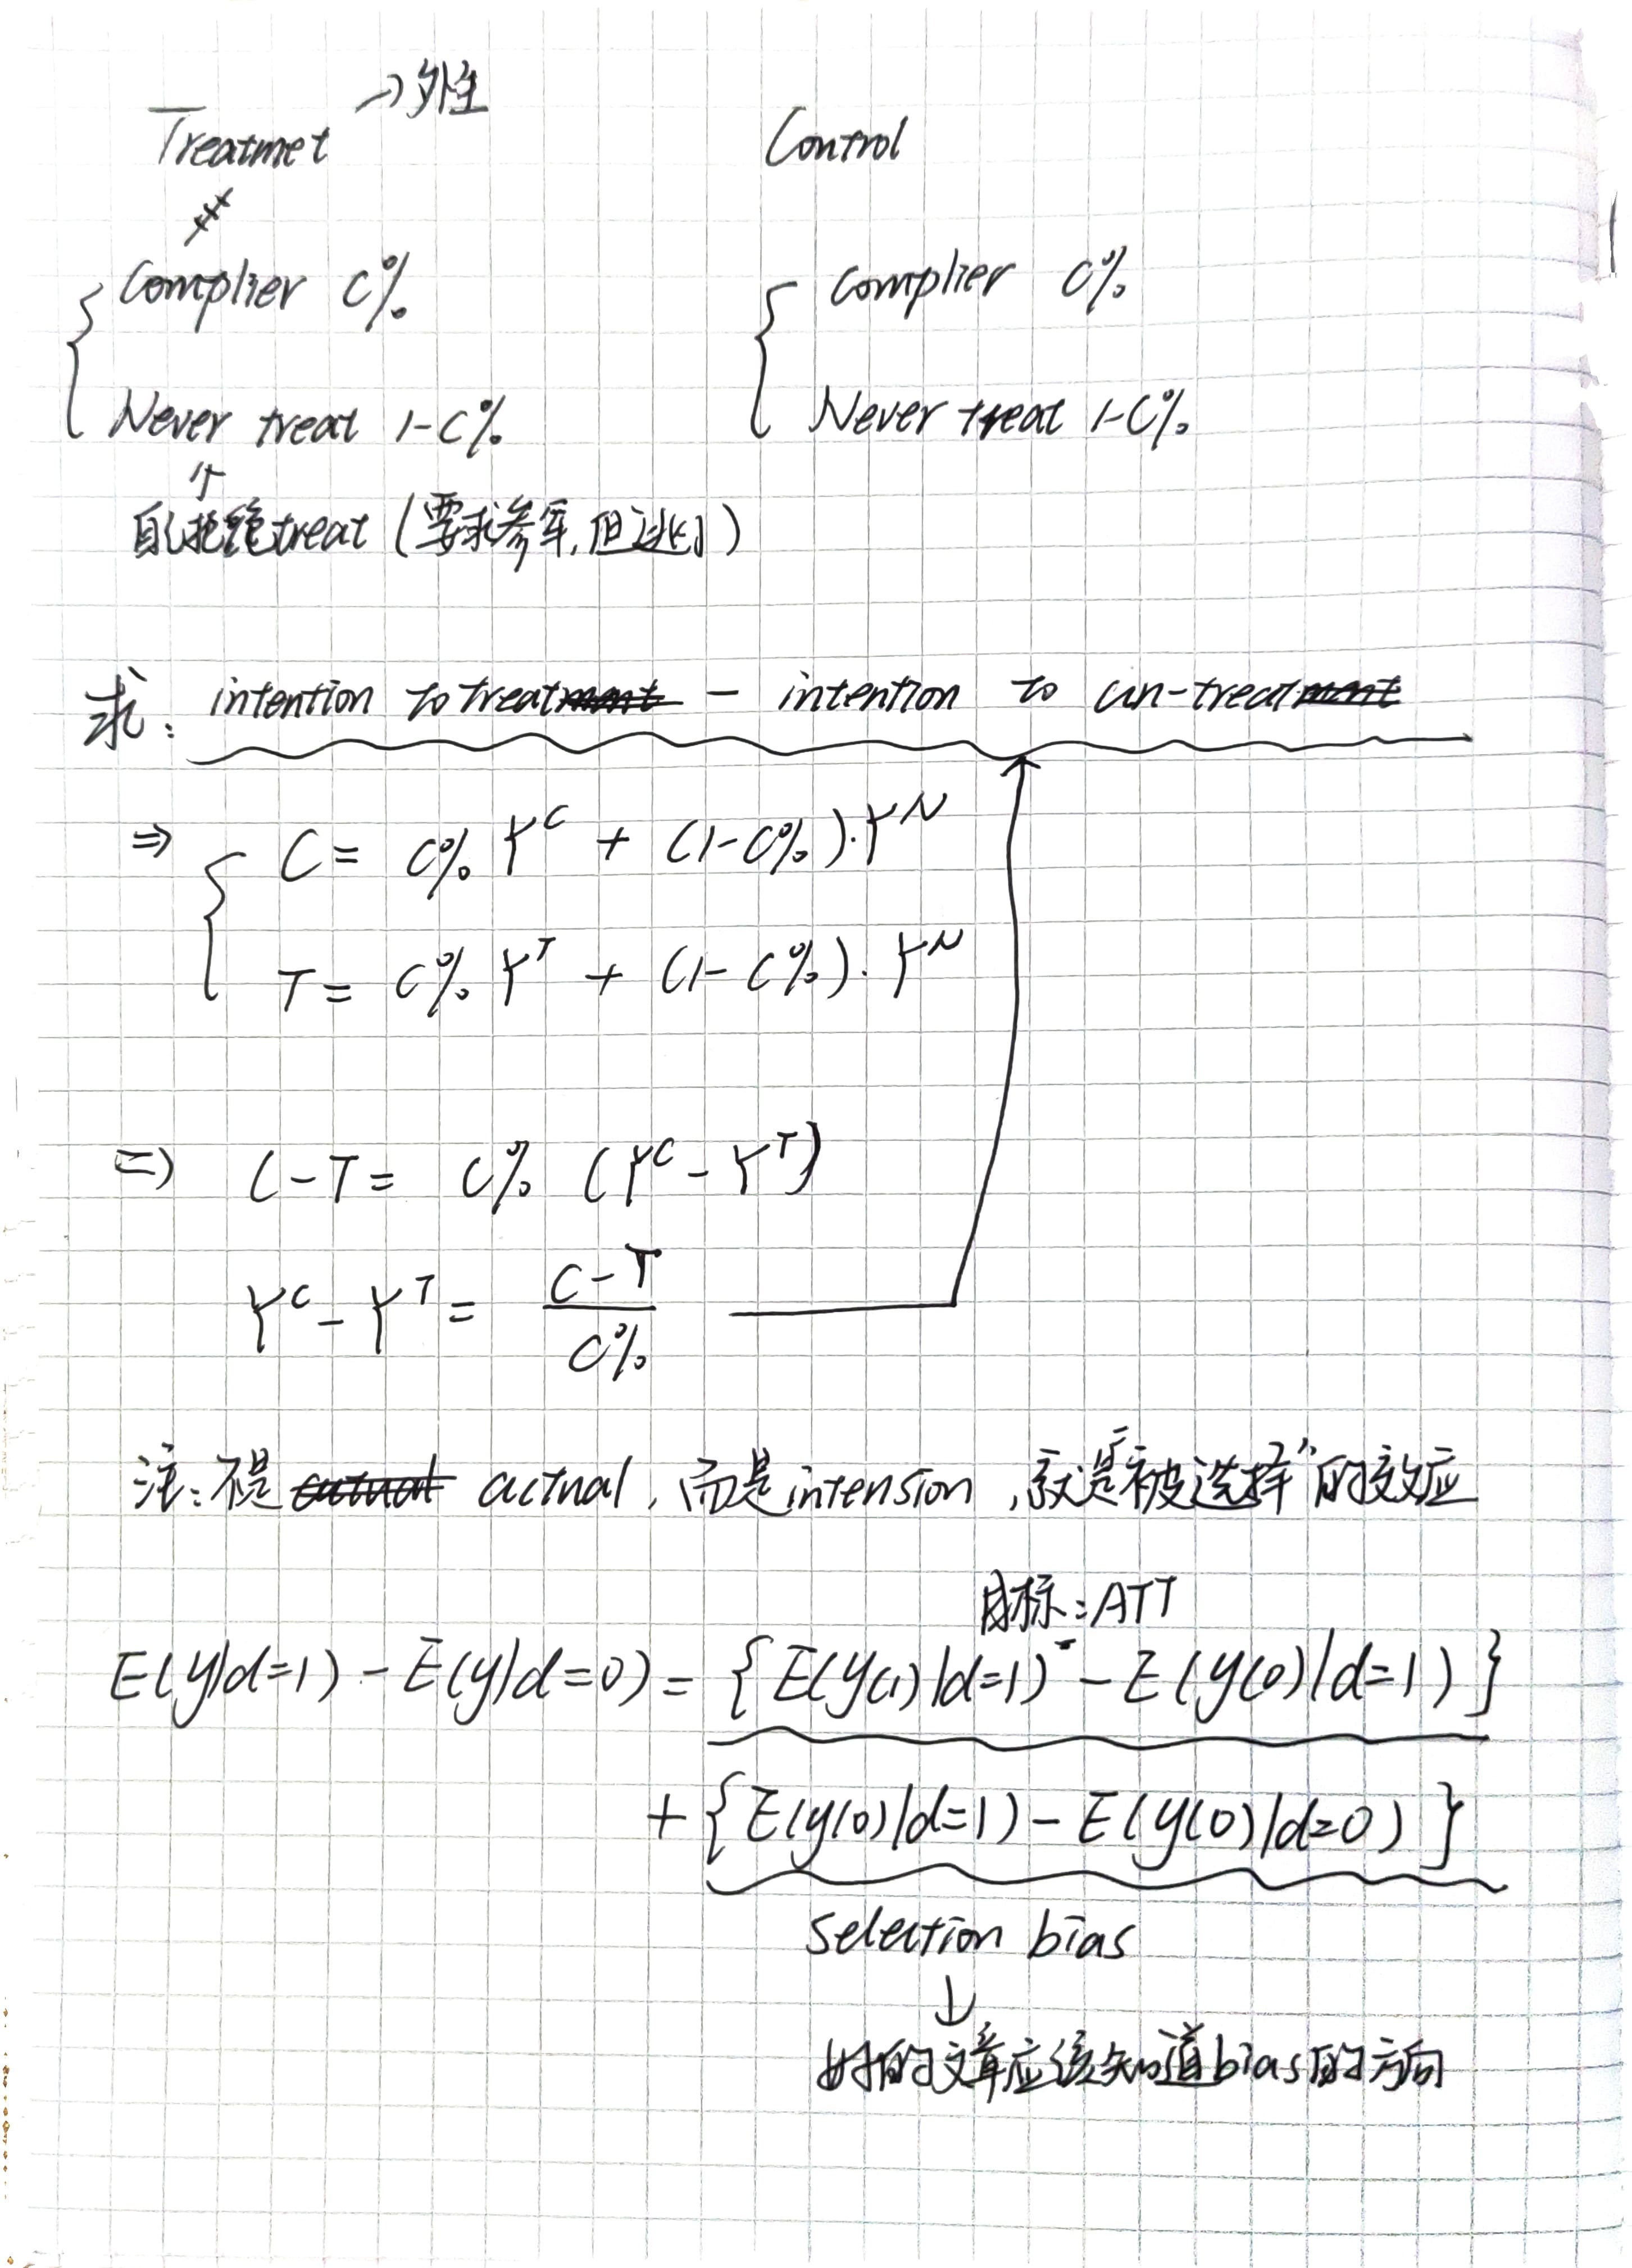 Treatmet → 外生
Control
Complier C%
Complier C%
Never treat 1-C%
Never treat 1-C%
↑
自拒绝treat (要求参军,但逃了)
求: intention to treat - intention to un-treat
⇒ C = C% Y^C + (1-C%)·Y^N
T = C% Y^T + (1-C%)·Y^N
⇒ C-T = C% (Y^C - Y^T)
Y^C - Y^T = (C-T)/C%
注:不是 actual,而是intension,就是“被选择”的效应
目标:ATT
E(y|d=1) - E(y|d=0) = {E(y(1)|d=1) - E(y(0)|d=1)}
+ {E(y(0)|d=1) - E(y(0)|d=0)}
selection bias
↓
好的文章应该知道bias的方向